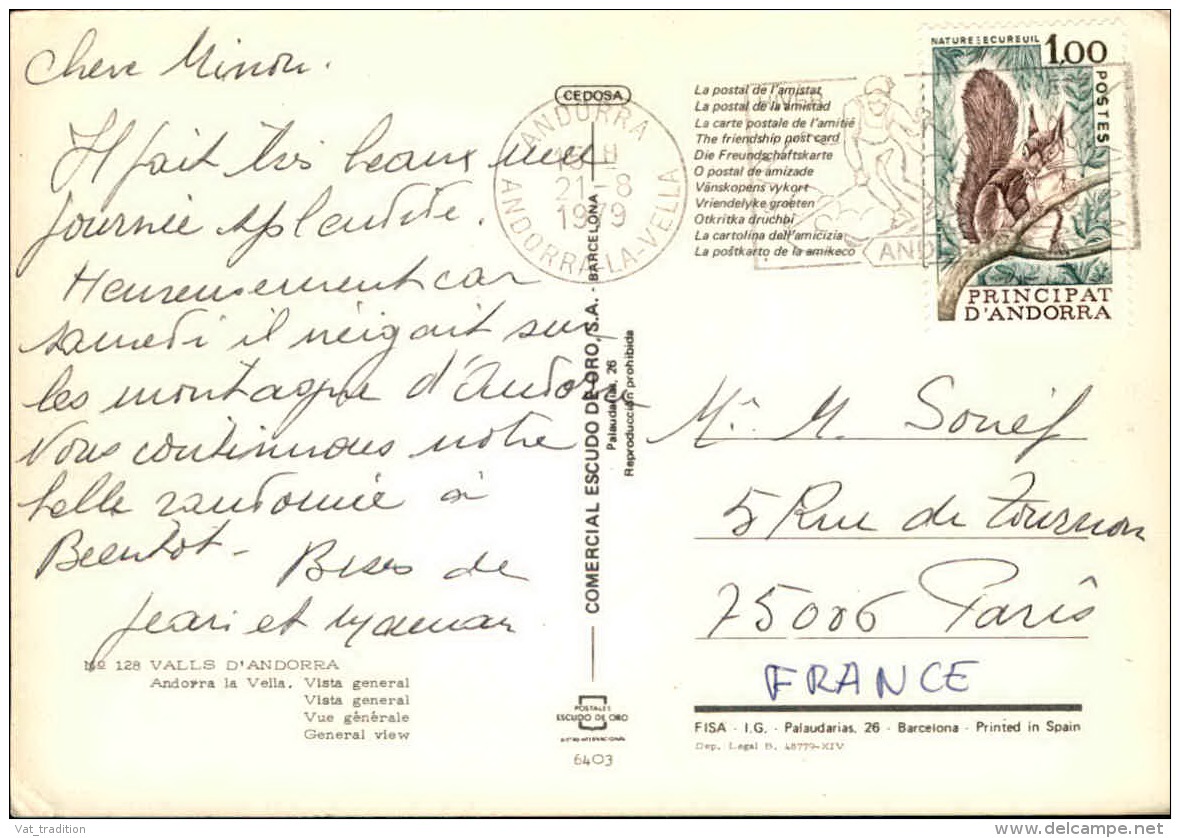 Chere Minou.
Il fait très beaux une
journée splendide.
Heureusement car
samedi il neigait sur
les montagne d'Andorre
Nous continuons notre
belle randonnée à
Bientot - Bises de
Jean et Maman
Nº 128 VALLS D'ANDORRA
Andorra la Vella. Vista general
Vista general
Vue générale
General view
CEDOSA
COMERCIAL ESCUDO DE ORO, S.A. - BARCELONA
Palaudarias, 26
Reproducción prohibida
POSTALES
ESCUDO DE ORO
6403
La postal de l'amistat
La postal de la amistad
La carte postale de l'amitié
The friendship post card
Die Freundschaftskarte
O postal de amizade
Vänskopens vykort
Vriendelyke groeten
Otkritka druchbi
La cartolina dell'amicizia
La poŝtkarto de la amikeco
ANDORRA
21-8
1979
ANDORRA-LA-VELLA
NATURE ECUREUIL
1,00
POSTES
PRINCIPAT
D'ANDORRA
M. Souéf
5 Rue de Tournon
75006 Paris
FRANCE
FISA - I.G. - Palaudarias, 26 - Barcelona - Printed in Spain
Dep. Legal B. 48779-XIV
Vat_tradition
delcampe.net